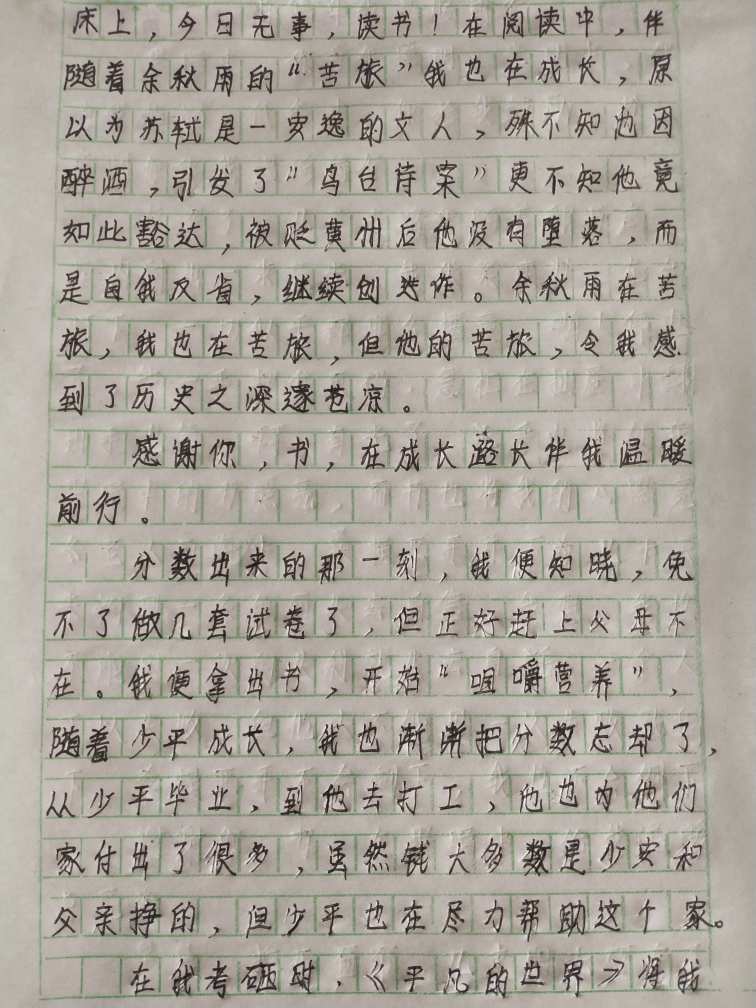 床上，今日无事，读书！在阅读中，伴
随着余秋雨的“苦旅”我也在成长，原
以为苏轼是一安逸的文人，殊不知他因
醉酒，引发了“乌台诗案”更不知他竟
如此豁达，被贬黄州后他没有堕落，而
是自我反省，继续创作。余秋雨在苦
旅，我也在苦旅，但他的苦旅，令我感
到了历史之深邃苍凉。
感谢你，书，在成长路长伴我温暖
前行。
分数出来的那一刻，我便知晓，免
不了做几套试卷了，但正好赶上父母不
在。我便拿出书，开始“咀嚼营养”，
随着少平成长，我也渐渐把分数忘却了，
从少平毕业，到他去打工，他也为他们
家付出了很多，虽然钱大多数是少安和
父亲挣的，但少平也在尽力帮助这个家。
在我考砸时，《平凡的世界》将我